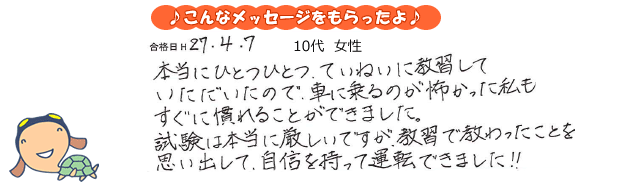 ♪こんなメッセージをもらったよ♪
合格日 H 27.4.7 10代 女性
本当にひとつひとつ、ていねいに教習して
いただいたので、車に乗るのが怖かった私も
すぐに慣れることができました。
試験は本当に厳しいですが、教習で教わったことを
思い出して、自信を持って運転できました!!